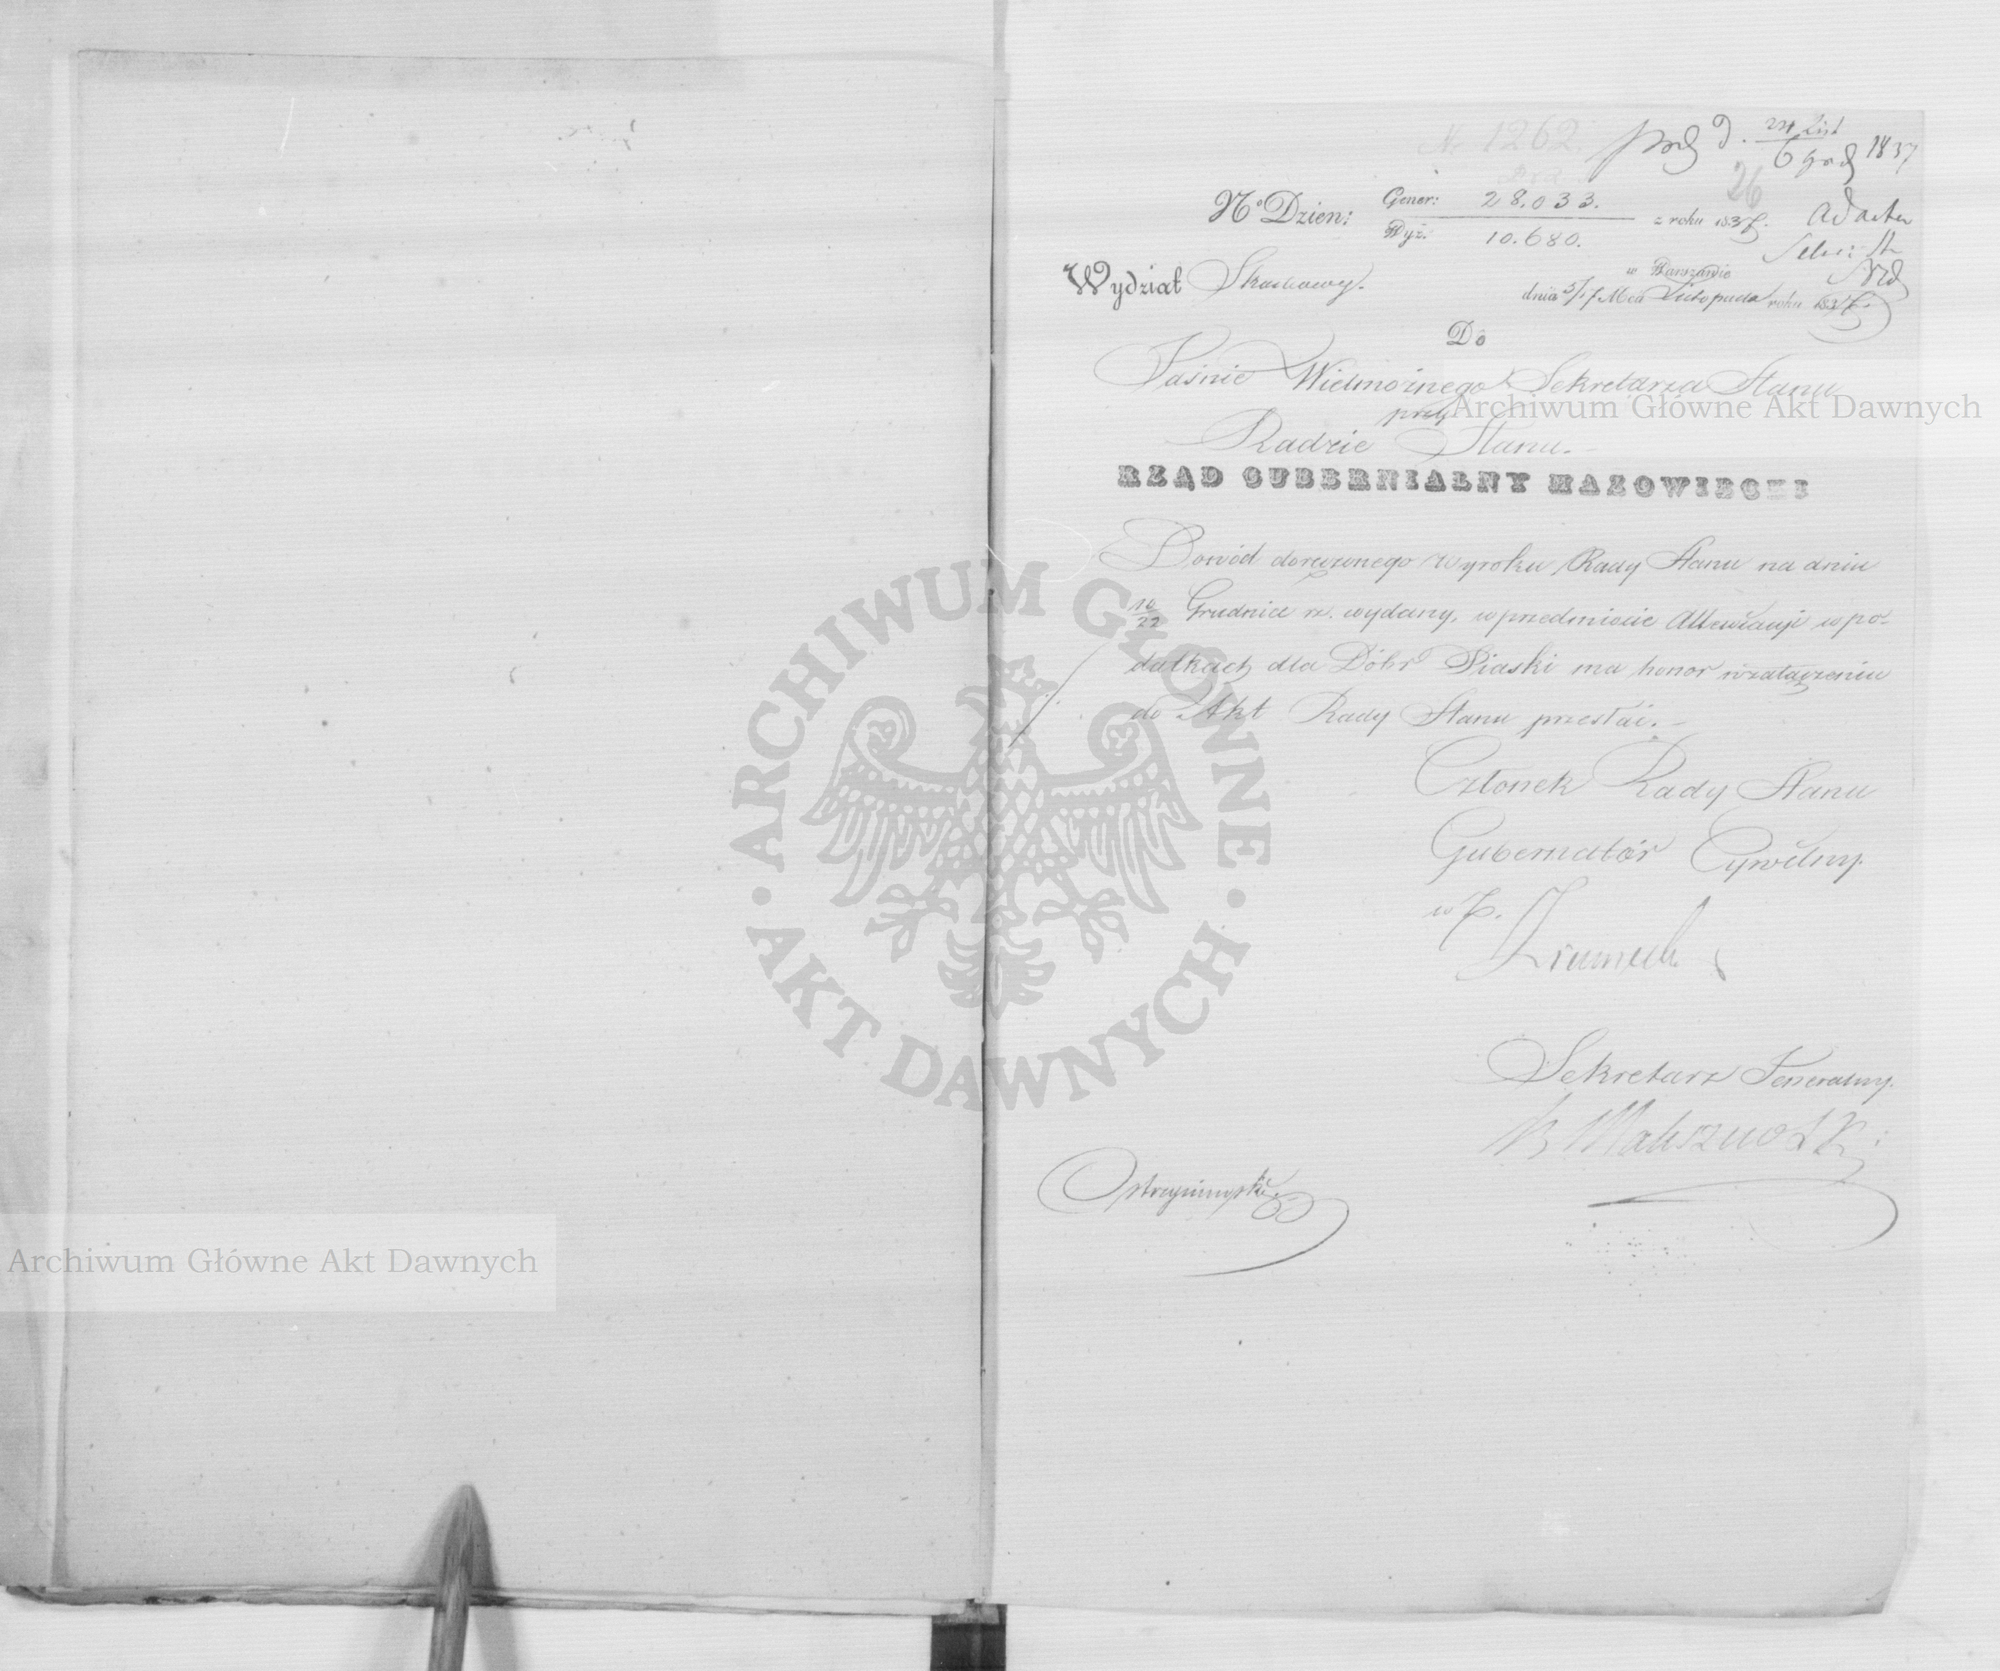 Nr 1262.
24 List
6 Grud 1837
26
No Dzien: Gener: 28.033. z roku 1837.
Wyż: 10.680.
ad acta
w Warszawie
Wydział Skarbowy. dnia 5/17 Mca Listopada roku 1837.
Do
Jaśnie Wielmożnego Sekretarza Stanu
przy
Radzie Stanu.
RZĄD GUBERNIALNY MAZOWIECKI
Dowód doręczonego wyroku Rady Stanu na dniu
10/22 Grudnia rz. wydany, w przedmiocie Allewiacyi w po-
datkach dla Dóbr Piaski ma honor w załączeniu
do Akt Rady Stanu przesłać.
Członek Rady Stanu
Gubernator Cywilny.
w Z.
Sekretarz Generalny.
Archiwum Główne Akt Dawnych
Archiwum Główne Akt Dawnych
ARCHIWUM GŁÓWNE
AKT DAWNYCH